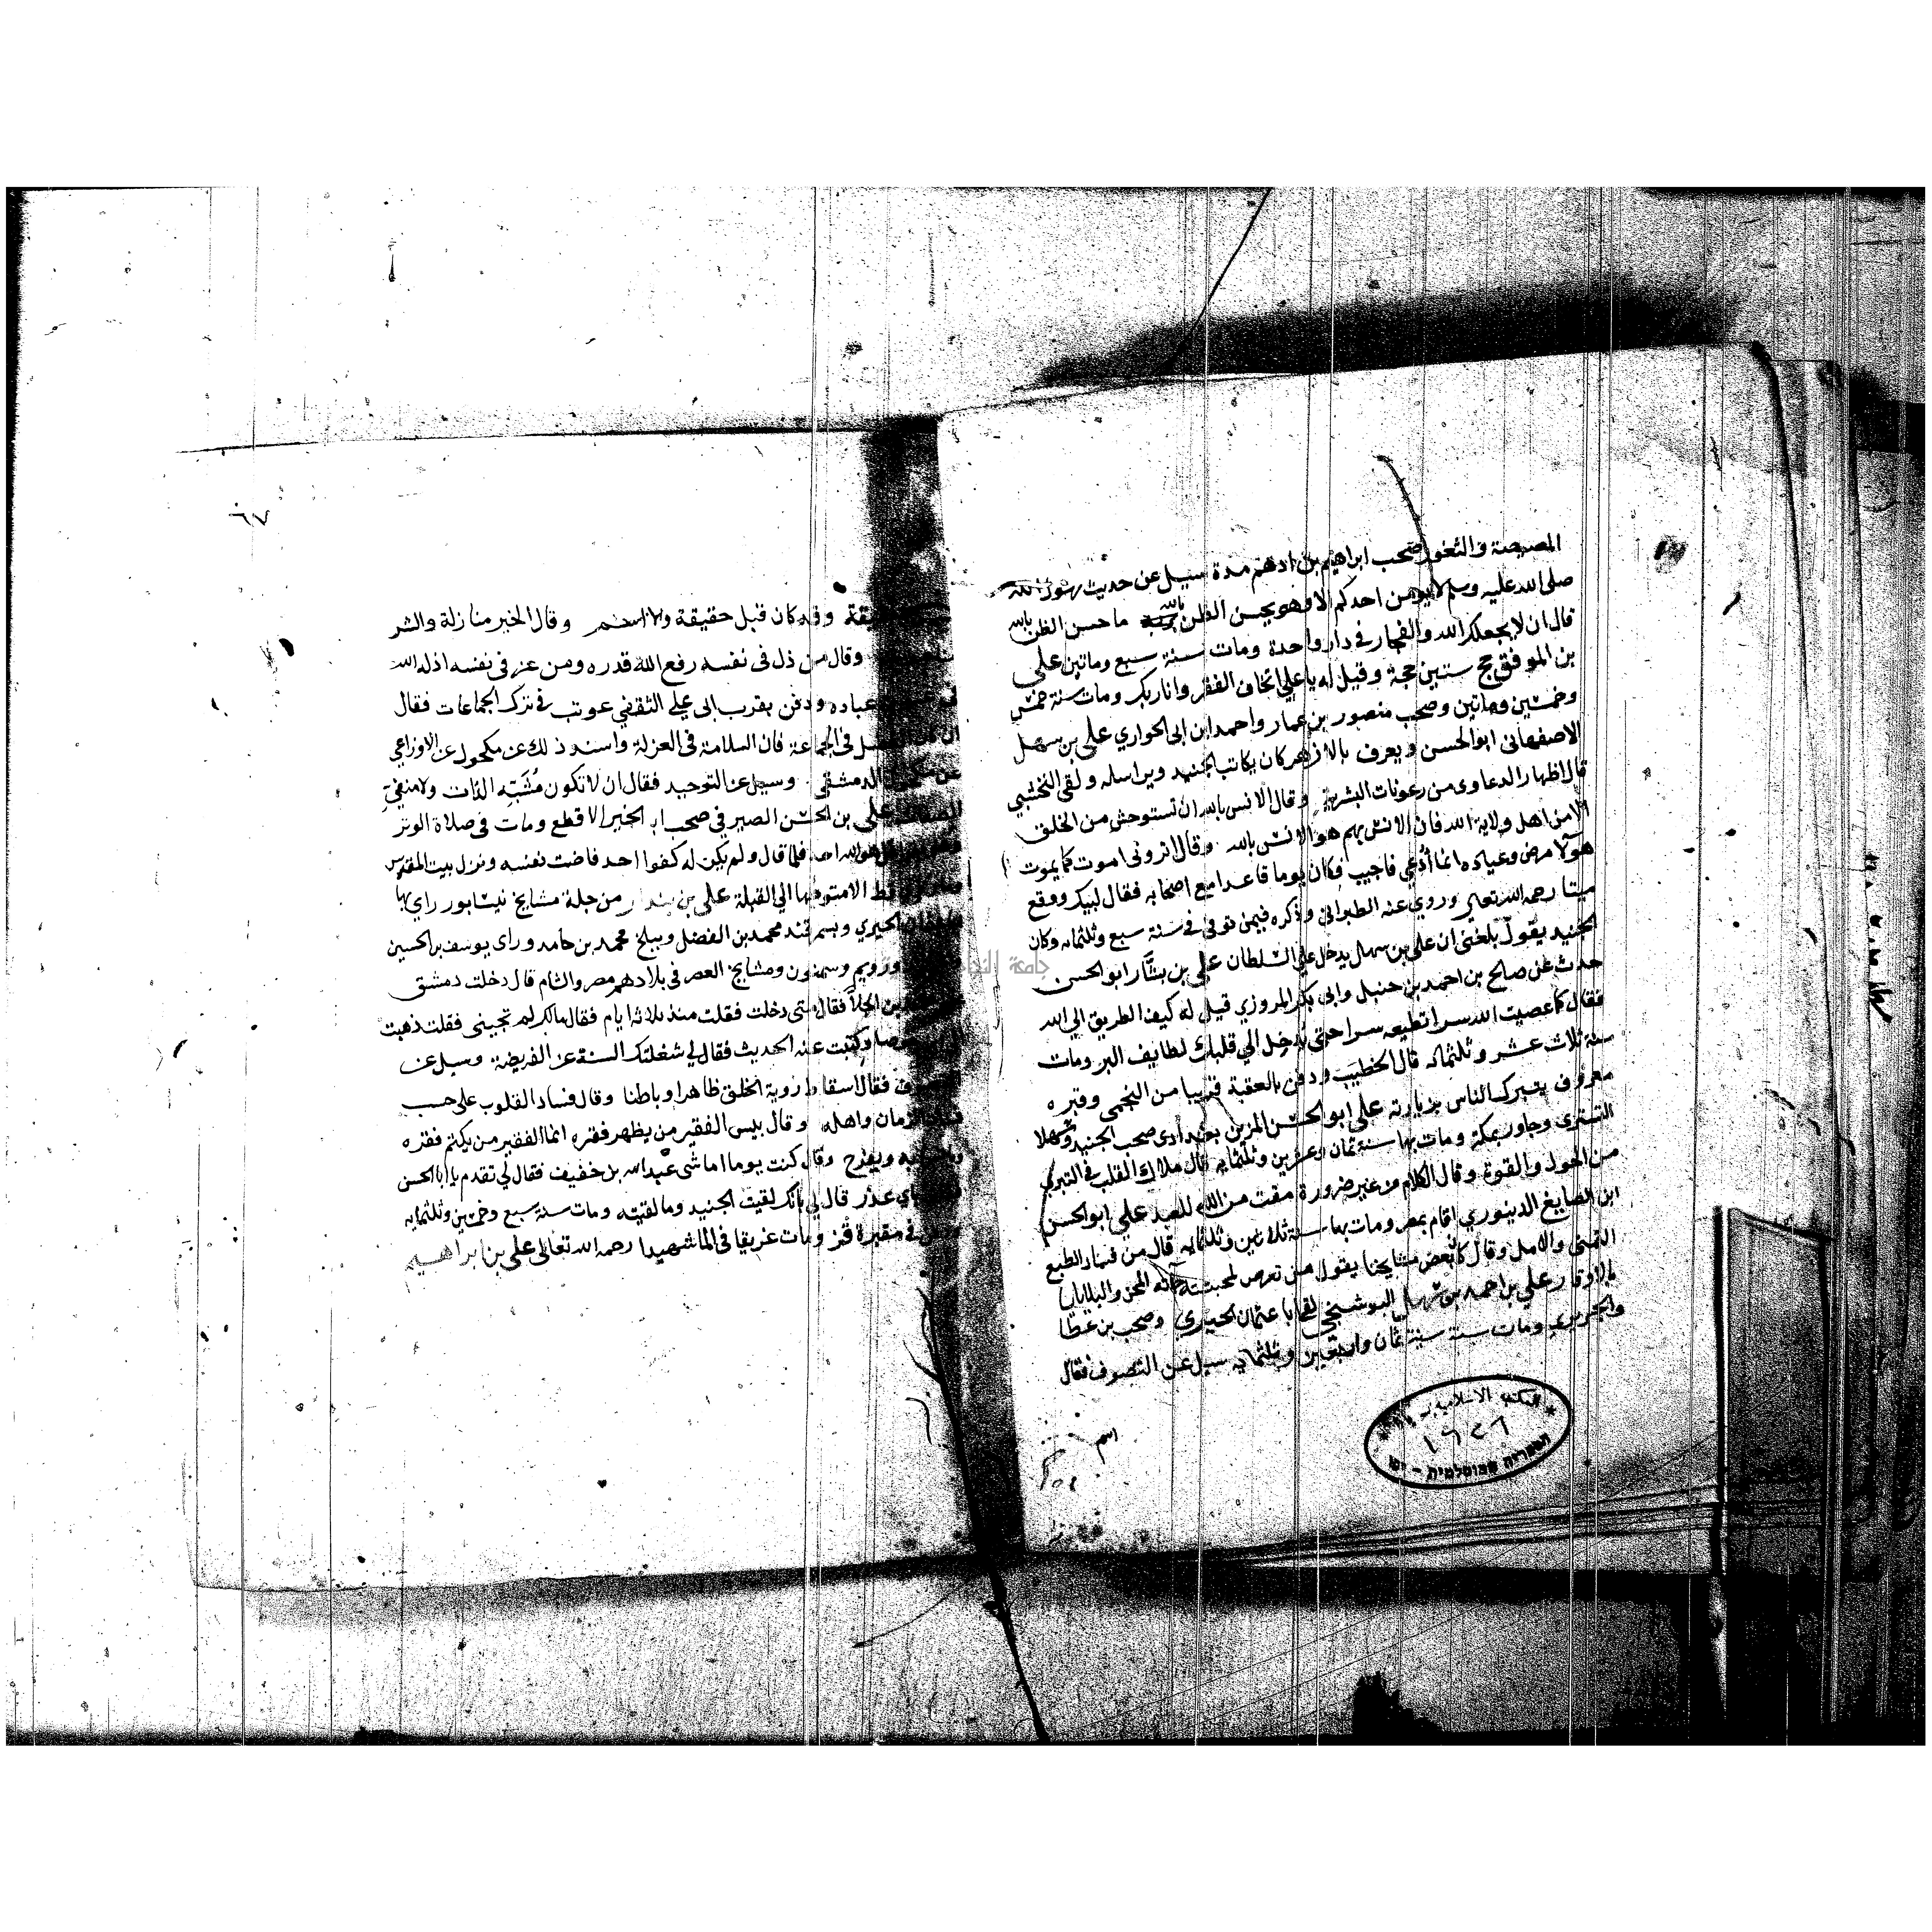 المصيصة والثغور صحب ابراهيم بن ادهم مدة سيل عن حديث رسول الله
صلى الله عليه وسلم لا يموتن احدكم الا وهو يحسن الظن بالله ما حسن الظن بالله
قال ان لا يجعلك الله والفجار في دار واحدة ومات سنة سبع وماتين علي
بن الموفق حج ستين حجة وقيل له يا علي اتخاف الفقر وانا ربك ومات سنة خمس
وخمسين وماتين وصحب منصور بن عمار واحمد ابن ابي الحواري علي بن سهل
الاصفهاني ابو الحسن ويعرف بالازهر كان يكاتب الجنيد ويراسله ولقي النخشبي
قال اظهار الدعاوى من رعونات البشرية وقال الانس بالله ان تستوحش من الخلق
الا من اهل ولاية الله فان الانس بهم هو الانس بالله وقال اتروني اموت كما يموت
هولا مرض وعيادة انما أدعي فاجيب فكان يوما قاعدا مع اصحابه فقال لبيك ووقع
ميتا رحمه الله تعالى وروى عنه الطبراني وذكره فيمن توفي في سنة سبع وثلثمايه وكان
الجنيد يقول بلغني ان علي بن سهل يدخل علي السلطان علي بن بشار ابو الحسن
حدث عن صالح بن احمد بن حنبل وابي بكر المروزي قيل له كيف الطريق الي الله
فقال كما عصيت الله سرا تطيعه سرا حتى يدخل الي قلبك لطايف البر ومات
سنة ثلاث عشر وثلثمايه قال الخطيب ودفن بالعقبة قريبا من النجمي وقبره
معروف يتبرك الناس بزيارته علي ابو الحسن المزين بغدادى صحب الجنيد وسهلا
التسترى وجاور بمكة ومات بها سنة ثمان وعشرين وثلثمايه قال ملاك القلب في التبري
من الحول والقوة وقال الكلام من غير ضرورة مقت من الله للعبد علي ابو الحسن
ابن الصايغ الدينوري اقام بمصر ومات بها سنة ثلاثين وثلثمايه قال من فساد الطبع
التمنى والامل وقال كان بعض مشايخنا يقول من تعرض لمحبته جآته المحن والبلايا
بالاوقار علي بن احمد بن سهل البوشنجي لقي ابا عثمان الحيري وصحب بن عطا
والجريري ومات سنة سنة ثمان واربعين وثلثمايه سيل عن التصوف فقال
اسم
المكتبة الاسلامية
٦٧
وقد كان قبل حقيقة ولا اسم وقال الخير منازلة والشر
وقال من ذل في نفسه رفع الله قدره ومن عز في نفسه اذله الله
عباده ودفن بقرب ابي علي الثقفي عوتب في ترك الجماعات فقال
في الجماعة فان السلامة في العزلة واسند ذلك عن مكحول عن الاوزاعي
الدمشقي وسيل عن التوحيد فقال ان لا تكون مُشَبَّهِ الذات ولا منفيّ
علي بن الحسن الصيرفي صحب ابا الخير الاقطع ومات في صلاة الوتر
هو الله احد فلما قال ولم يكن له كفوا احد فاضت نفسه ونزل بيت المقدس
الا متوجها الي القبلة علي بن بندار من جلة مشايخ نيسابور راي بها
الحيري وبسمرقند محمد بن الفضل وببلخ محمد بن حامد وراى يوسف بن الحسين
ورويم وسمنون ومشايخ العصر في بلادهم مصر والشام قال دخلت دمشق
بن الجلاّ فقال متى دخلت فقلت منذ ثلاثة ايام فقال مالك لم تجيني فقلت ذهبت
وكتبت عنه الحديث فقال لي شغلتك السنة عن الفريضة وسيل عن
فقال اسقاط روية الخلق ظاهرا وباطنا وقال فساد القلوب على حسب
الزمان واهله وقال ليس الفقير من يظهر فقره انما الفقير من يكتم فقره
ويفرح وقال كنت يوما اماشى عبد الله بن خفيف فقال لي تقدم يا ابا الحسن
باي عذر قال لي بانك لقيت الجنيد وما لقيته ومات سنة سبع وخمسين وثلثمايه
في مقبرة قز ومات غريقا في الما شهيدا رحمه الله تعالى علي بن ابراهيم